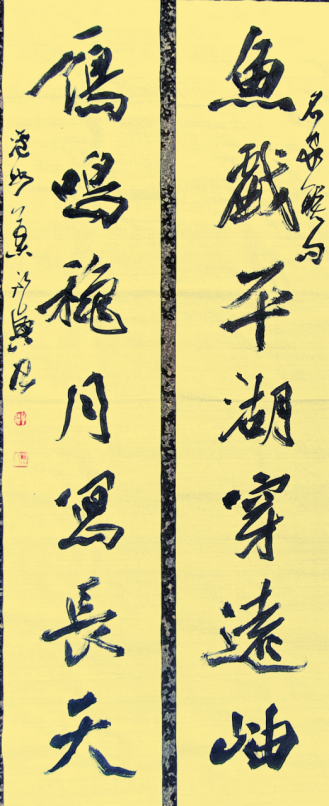 魚戲平湖穿遠岫
鴈鳴穐月寫長天